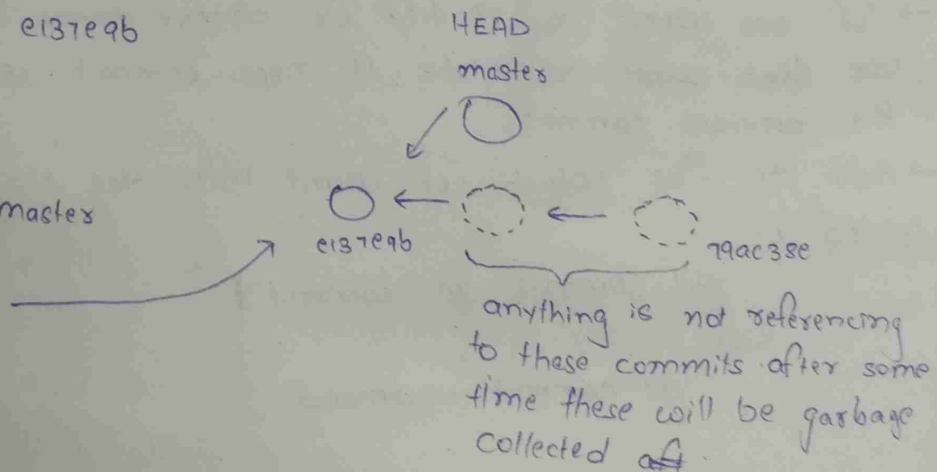 e137e9b
HEAD
master
master
e137e9b
79ac38e
anything is not referencing
to these commits after some
time these will be garbage
collected